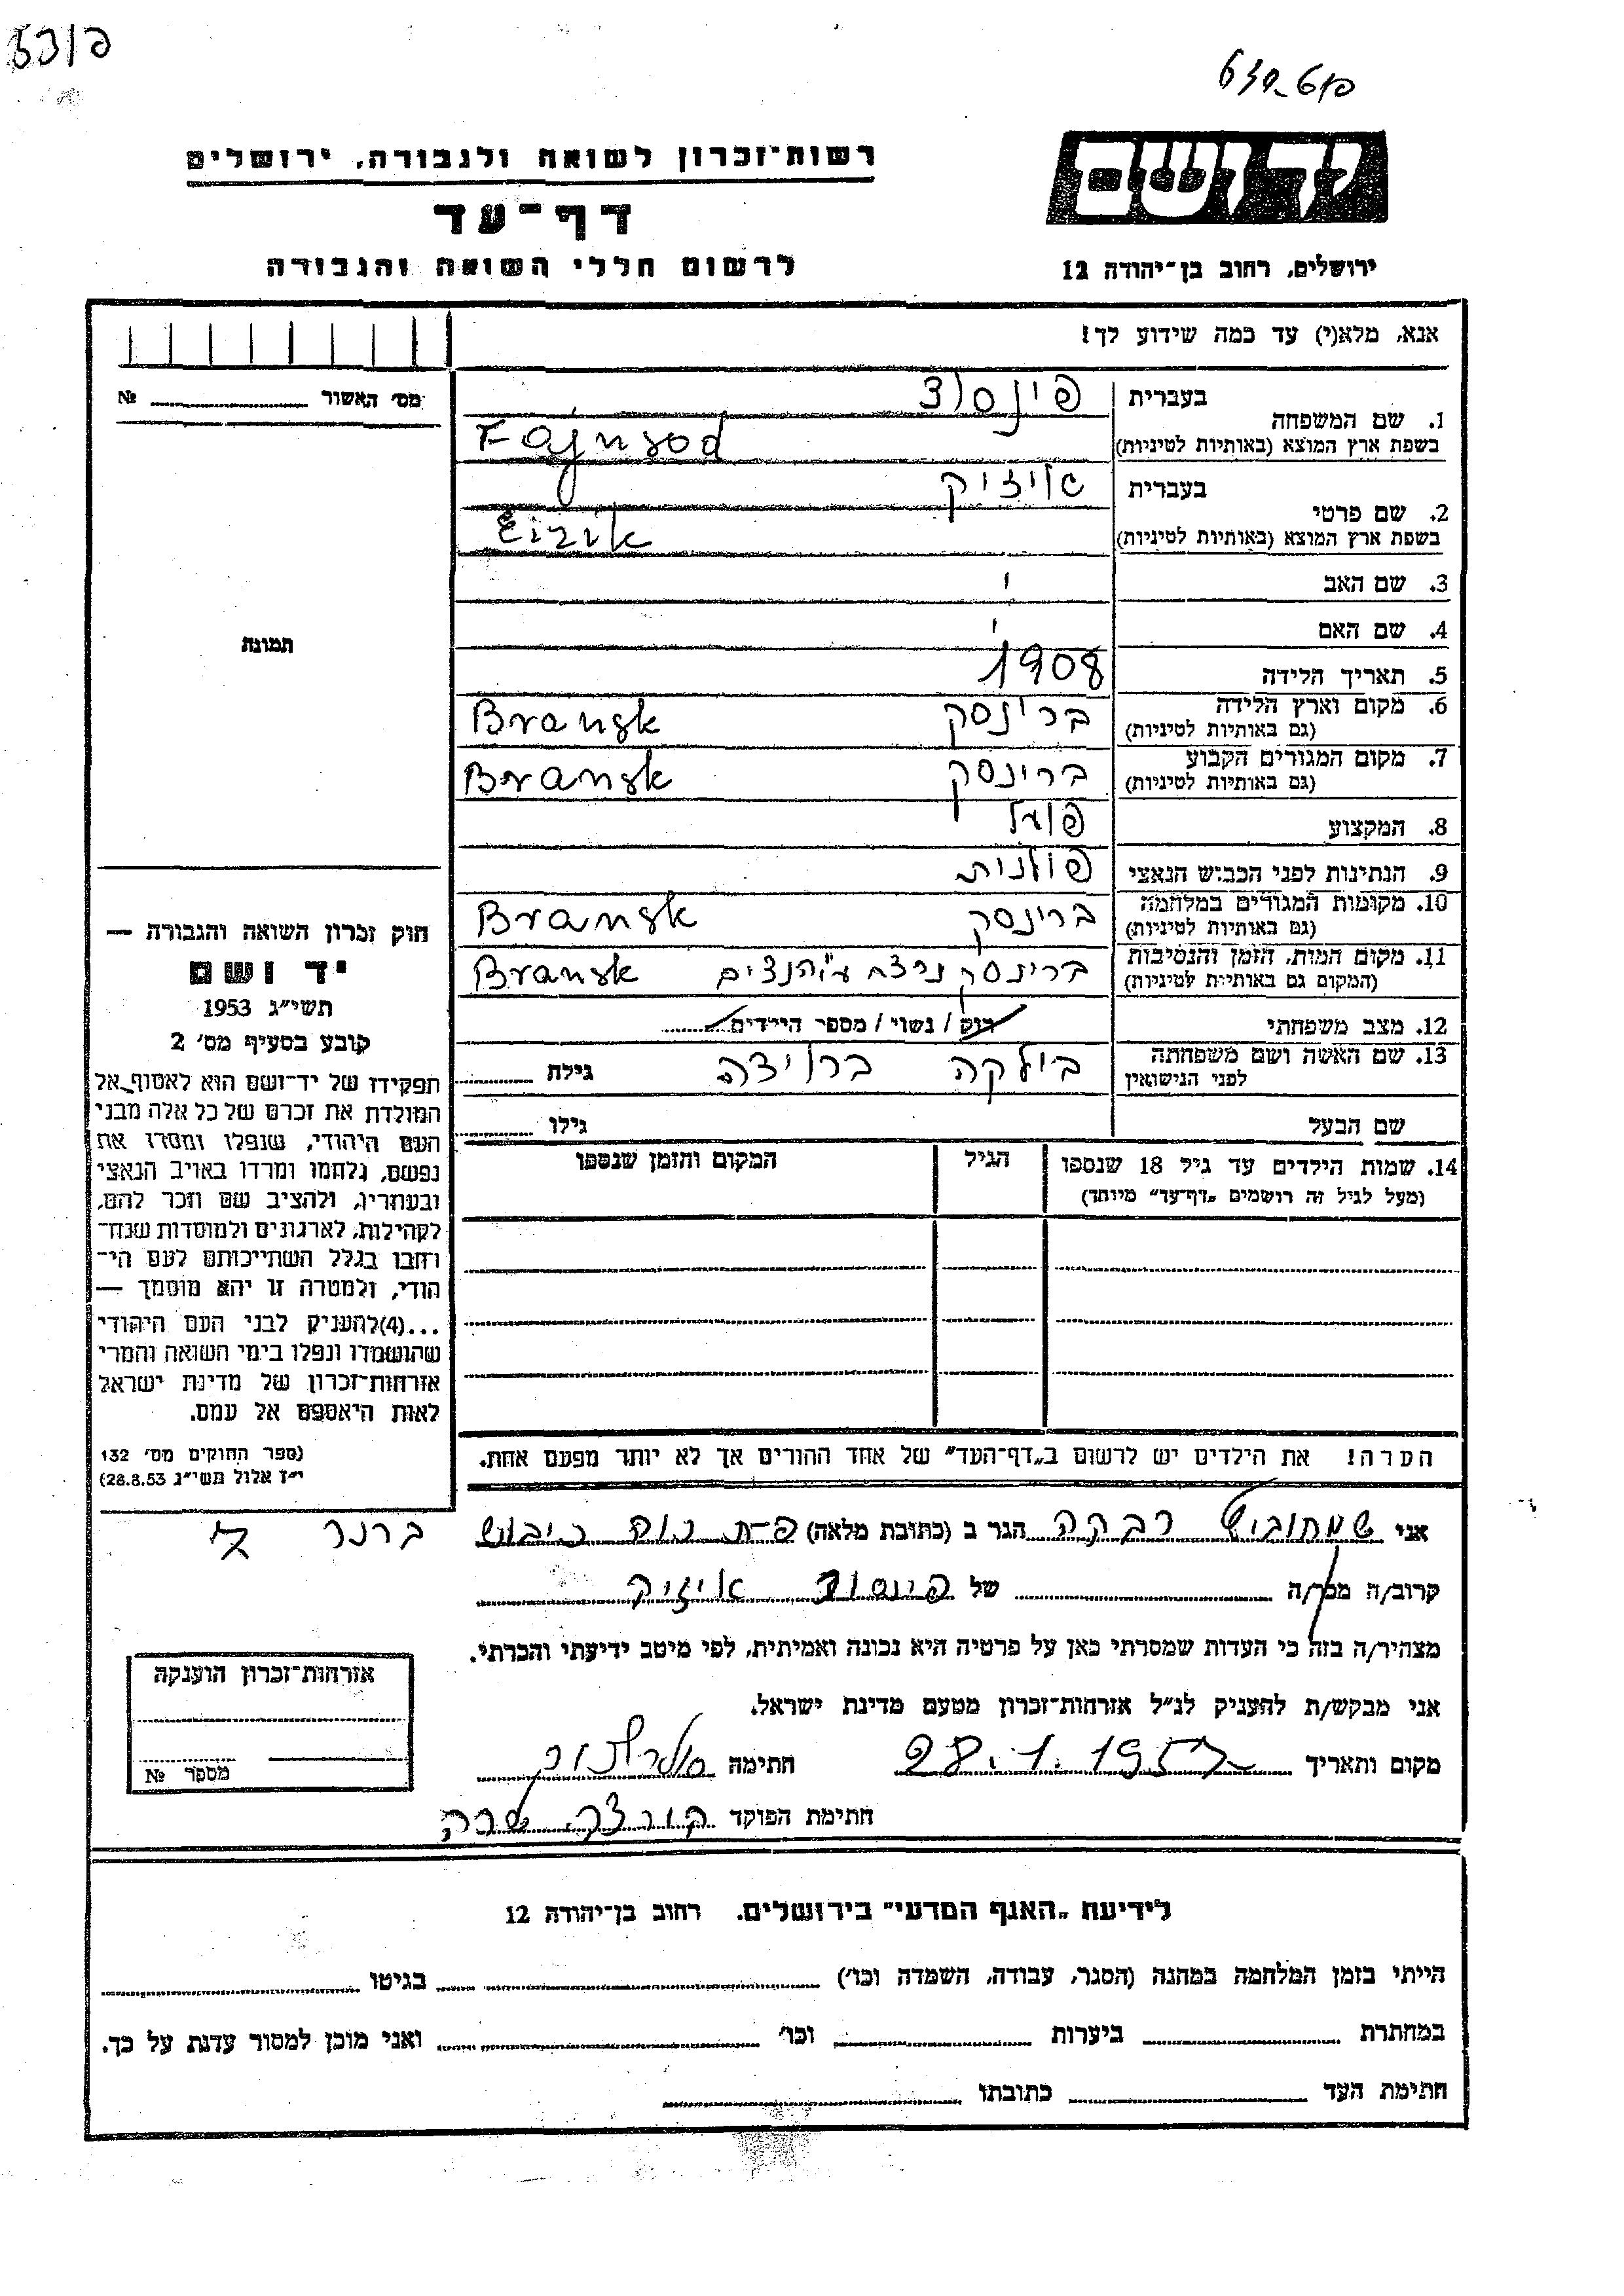 יד ושם
ירושלים, רחוב בן־יהודה 12
רשות־זכרון לשואה ולגבורה, ירושלים
דף־עד
לרשום חללי השואה והגבורה
אנא, מלא(י) עד כמה שידוע לך!
מס' האשור № ........
תמונה
1. שם המשפחה בעברית
בשפת ארץ המוצא (באותיות לטיניות) Fajnsod
2. שם פרטי בעברית אייזיק
בשפת ארץ המוצא (באותיות לטיניות) Eizik
3. שם האב
4. שם האם
5. תאריך הלידה 1908
6. מקום וארץ הלידה ברינסק Bransk
(גם באותיות לטיניות)
7. מקום המגורים הקבוע ברינסק Bransk
(גם באותיות לטיניות)
8. המקצוע פועל
9. הנתינות לפני הכביש הנאצי פולנית
10. מקומות המגורים במלחמה ברינסק Bransk
(גם באותיות לטיניות)
11. מקום המות, הזמן והנסיבות ברינסק נרצח ע"י הנצים Bransk
(המקום גם באותיות לטיניות)
12. מצב משפחתי רוק / נשוי / מספר הילדים ........
13. שם האשה ושם משפחתה
לפני הנישואין גילה ........
שם הבעל גילו ........
14. שמות הילדים עד גיל 18 שנספו הגיל המקום והזמן שנספו
(מעל לגיל זה רושמים „דף־עד" מיוחד)
הערה! את הילדים יש לרשום ב„דף־העד" של אחד ההורים אך לא יותר מפעם אחת.
חוק זכרון השואה והגבורה —
יד ושם
תשי"ג 1953
קובע בסעיף מס' 2
תפקידו של יד־ושם הוא לאסוף אל
המולדת את זכרם של כל אלה מבני
העם היהודי, שנפלו ומסרו את
נפשם, נלחמו ומרדו באויב הנאצי
ובעוזריו, ולהציב שם וזכר להם,
לקהילות, לארגונים ולמוסדות שנח־
רבו בגלל השתייכותם לעם הי־
הודי, ולמטרה זו יהא מוסמך —
...(4)להעניק לבני העם היהודי
שהושמדו ונפלו בימי השואה והמרי
אזרחות־זכרון של מדינת ישראל
לאות היאספם אל עמם.
(ספר החוקים מס' 132
י"ז אלול תשי"ג 28.8.53)
אני רבקה הגר ב (כתובת מלאה) ברנר
קרוב/ה מכר/ה של אייזיק
מצהיר/ה בזה כי העדות שמסרתי כאן על פרטיה היא נכונה ואמיתית, לפי מיטב ידיעתי והכרתי.
אני מבקש/ת להעניק לנ"ל אזרחות־זכרון מטעם מדינת ישראל.
מקום ותאריך 28.1.1957 חתימה
חתימת הפוקד שרה
אזרחות־זכרון הוענקה
מספר №
לידיעת „האגף המדעי" בירושלים. רחוב בן־יהודה 12
הייתי בזמן המלחמה במחנה (הסגר, עבודה, השמדה וכו') ........ בגיטו ........
במחתרת ........ ביערות ........ וכו' ........ ואני מוכן למסור עדות על כך.
חתימת העד ........ כתובתו ........